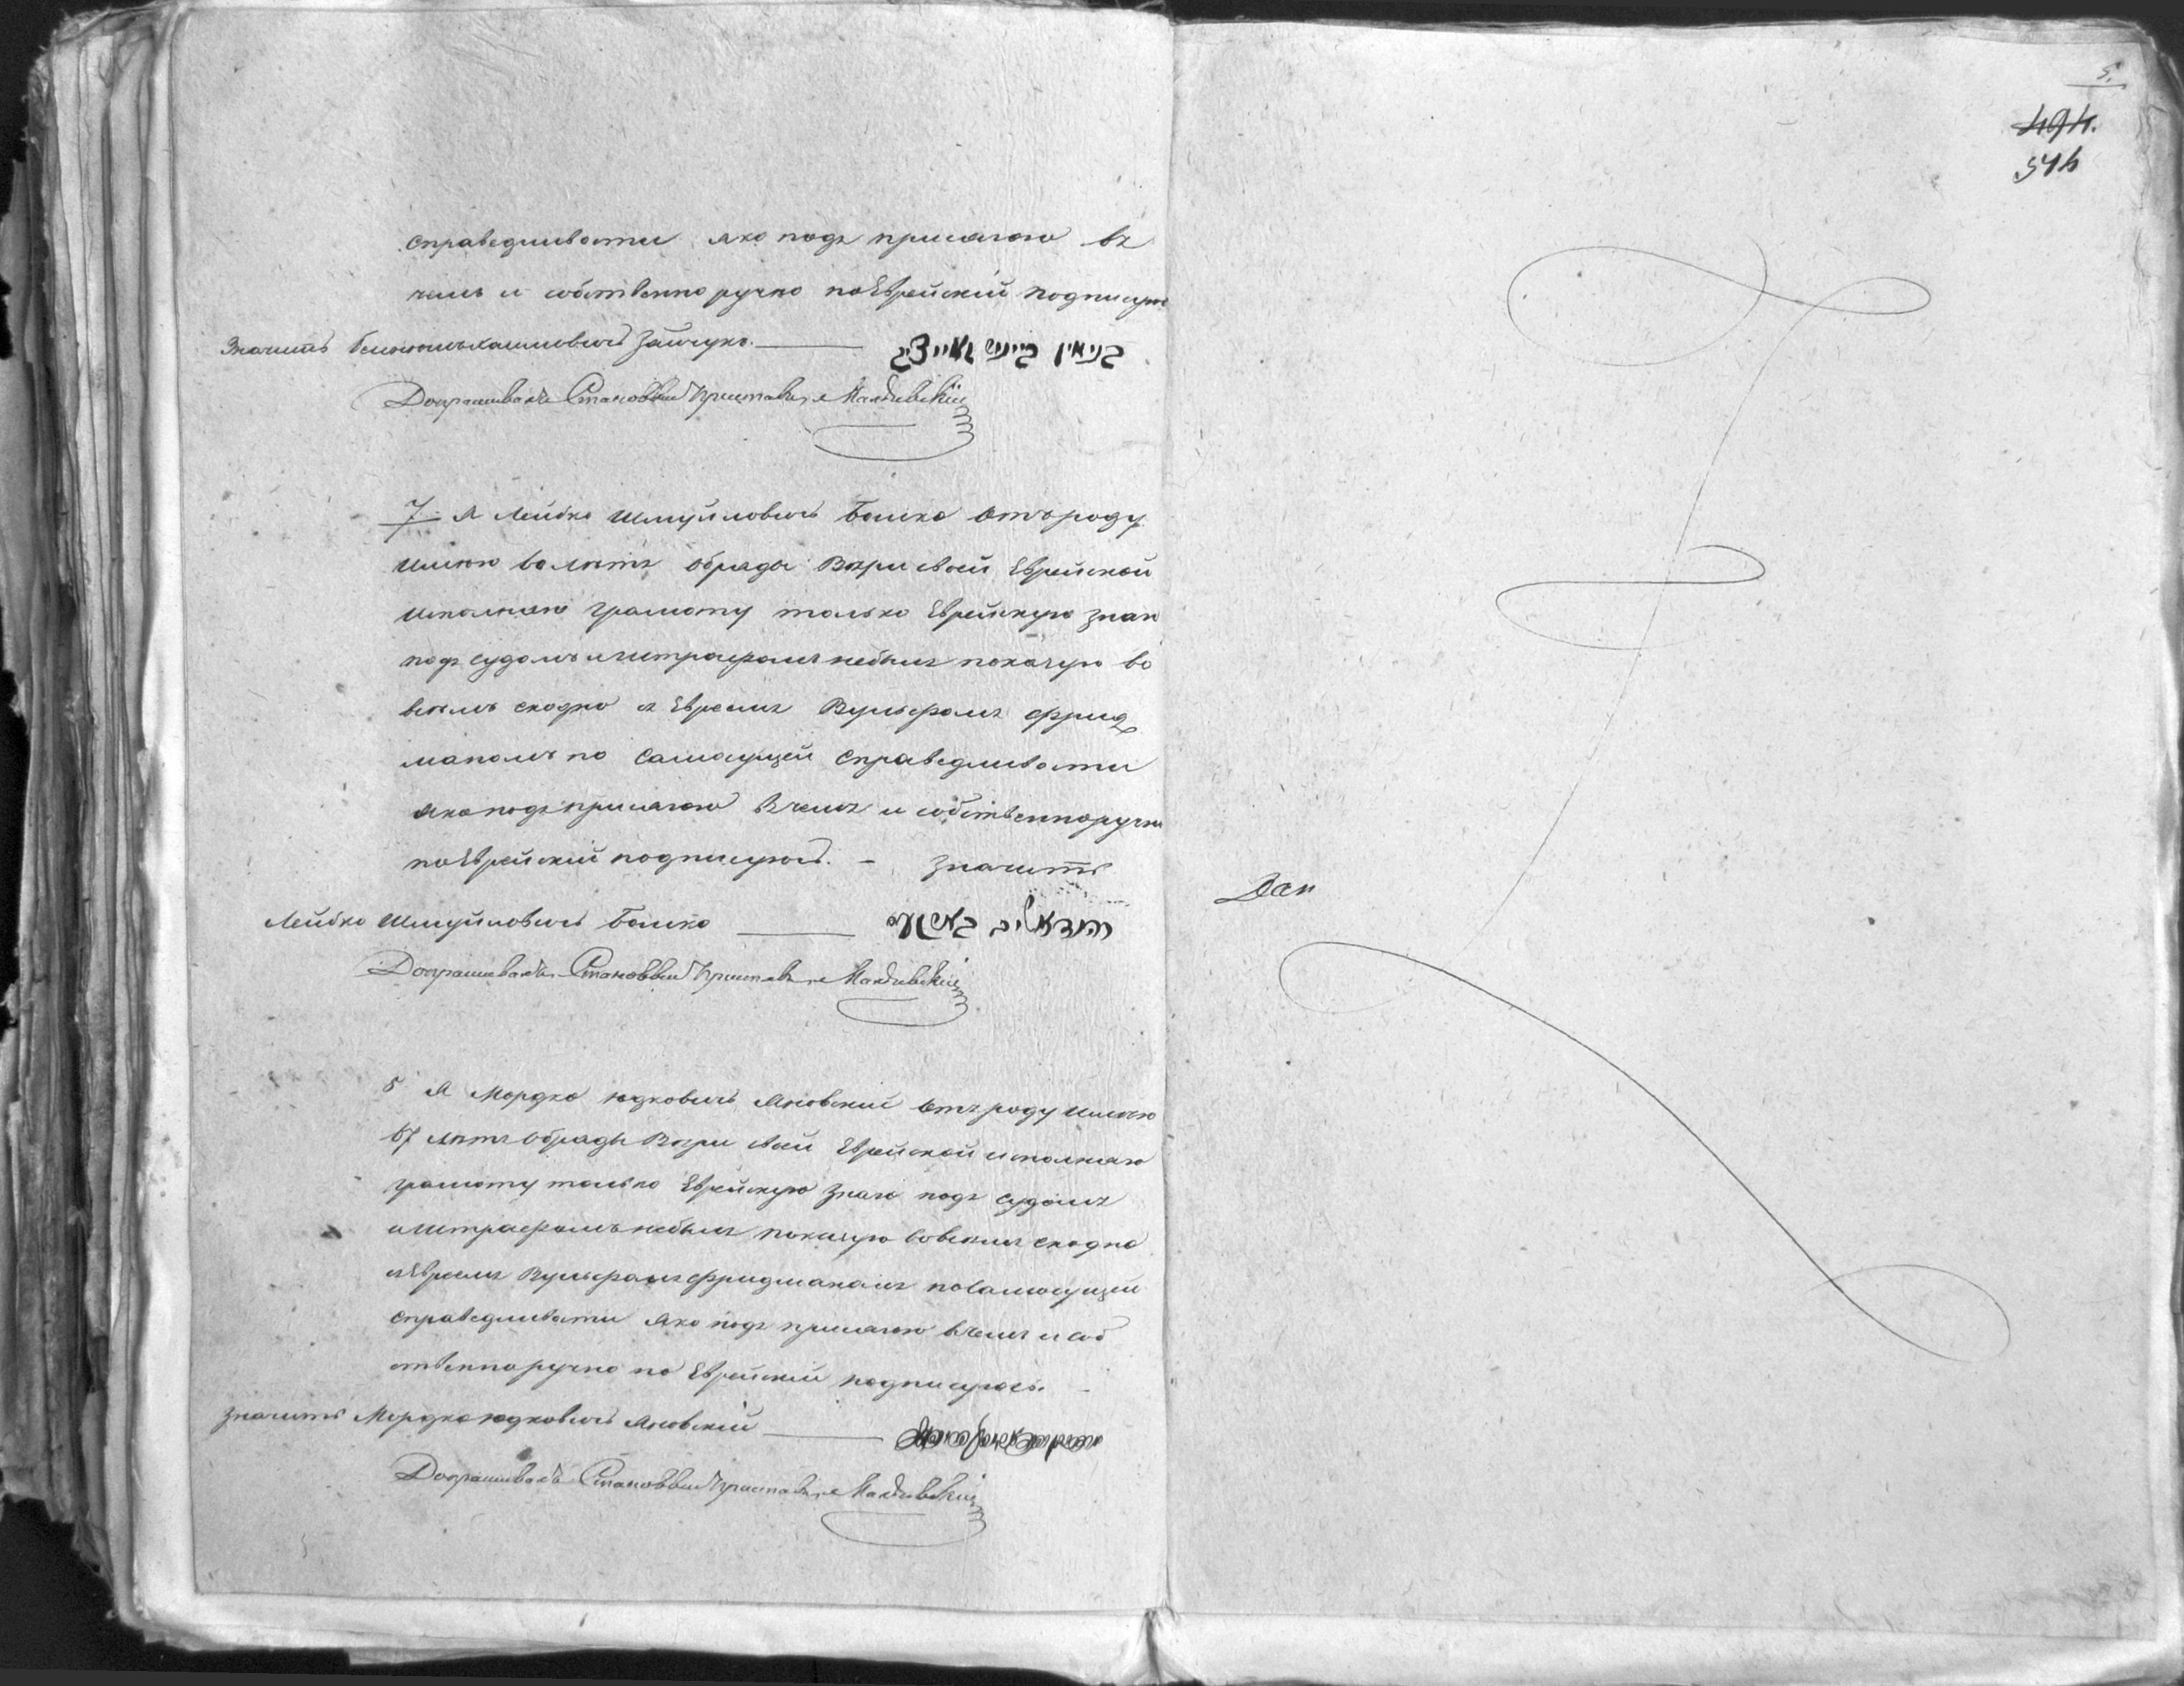 справедливости яко подъ присягою въ
чемъ и собственно ручно поЕврейскій подписуюс
Значитъ Зайчукъ. בנימין זאייציג
Допрашивалъ Становый Приставъ
7. Я Лейбко Шмуйловичъ Башко отъ роду
имею лѣтъ обряды Вѣри своей Еврейской
исполняю грамоту только Еврейскую знаю
подъ судомъ и штрафомъ небылъ показую во
всѣмъ сходно съ Евреемъ Вульфомъ Фрид
маномъ по самосущей справедливости
яко подъ присягою Вчемъ и собственноручно
поЕврейскій подписуюсь. – Значитъ
Лейбко Шмуйловичъ Башко
Допрашивалъ Становый Приставъ
8 Я Мордко Юдковичъ Яновскій отъ роду имѣю
67 лѣтъ Обряды Вѣри своей Еврейской исполняю
грамоту только Еврейскую знаю подъ судомъ
и штрафомъ небылъ показую вовсемъ сходно
съ Евреемъ Вульфомъ Фридманомъ поСамосущей
справедливости Яко подъ присягою вчемъ и соб
ственноручно по Еврейскій подписуюсь. –
Значитъ Мордко Юдковичъ Яновскій
Допрашивалъ Становый Приставъ
5.
494.
544